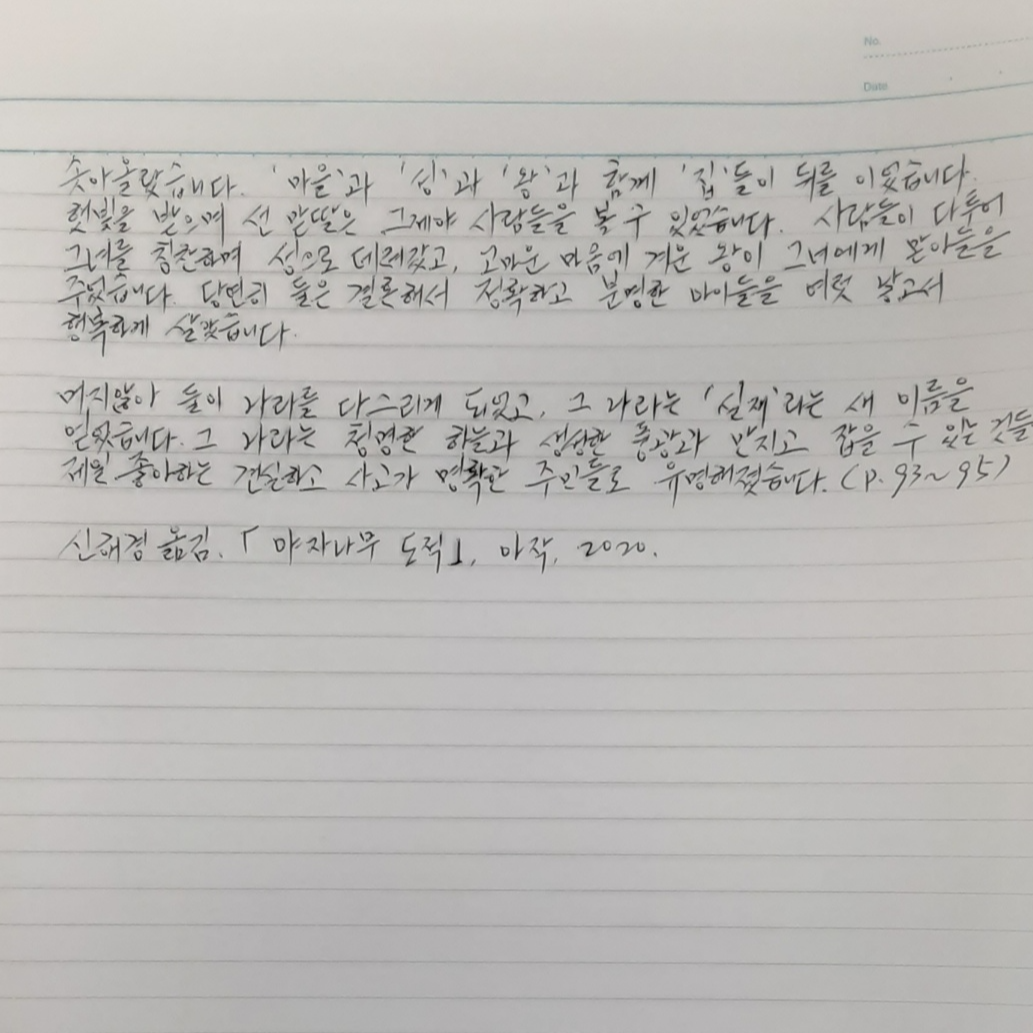 No.
Date
솟아올랐습니다. '마을'과 '성'과 '왕'과 함께 '집'들이 뒤를 이었습니다.
햇빛을 받으며 선 맏딸은 그제야 사람들을 볼 수 있었습니다. 사람들이 다투어
그녀를 칭찬하며 성으로 데려갔고, 고마운 마음에 겨운 왕이 그녀에게 맏아들을
주었습니다. 당연히 둘은 결혼해서 정확하고 분명한 아이들을 여럿 낳고서
행복하게 살았습니다.
머지않아 둘이 나라를 다스리게 되었고, 그 나라는 '실재'라는 새 이름을
얻었습니다. 그 나라는 청명한 하늘과 생생한 풍광과 만지고 잡을 수 있는 것들
제일 좋아하는 견실하고 사고가 명확한 주민들로 유명해졌습니다. (p. 93~95)
신해경 옮김. 「야자나무 도적」, 아작, 2020.